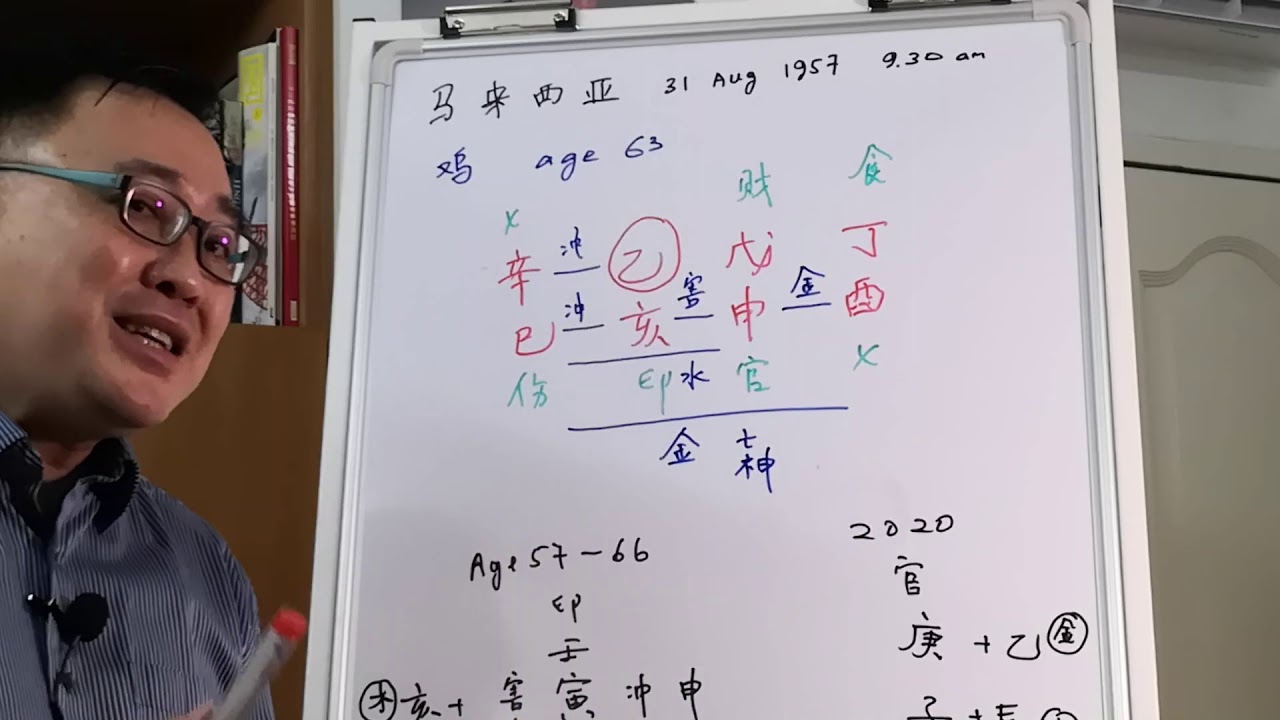 马来西亚 31 Aug 1957 9.30 am
鸡 age 63
财 食
x 辛 冲 乙 戊 丁
巳 冲 亥 害 申 金 酉
伤 印 水 官 x
金 七神
Age 57 - 66
2020
印
官
壬
庚 + 乙 金
木 亥 + 害 寅 冲 申
子 +